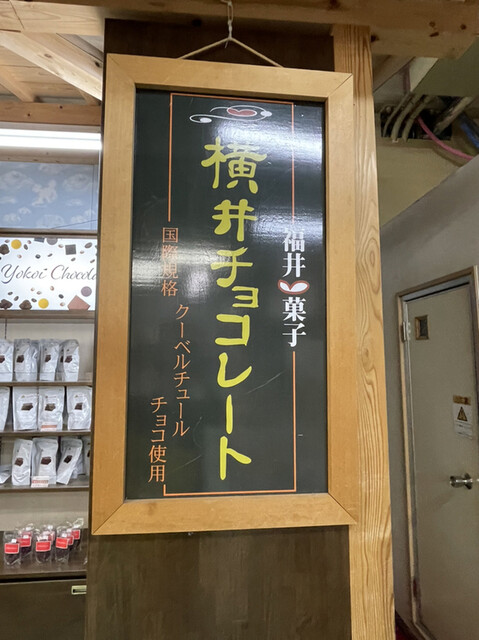 福井 菓子
横井チョコレート
国際規格
クーベルチュール
チョコ使用
Yokoi Chocola